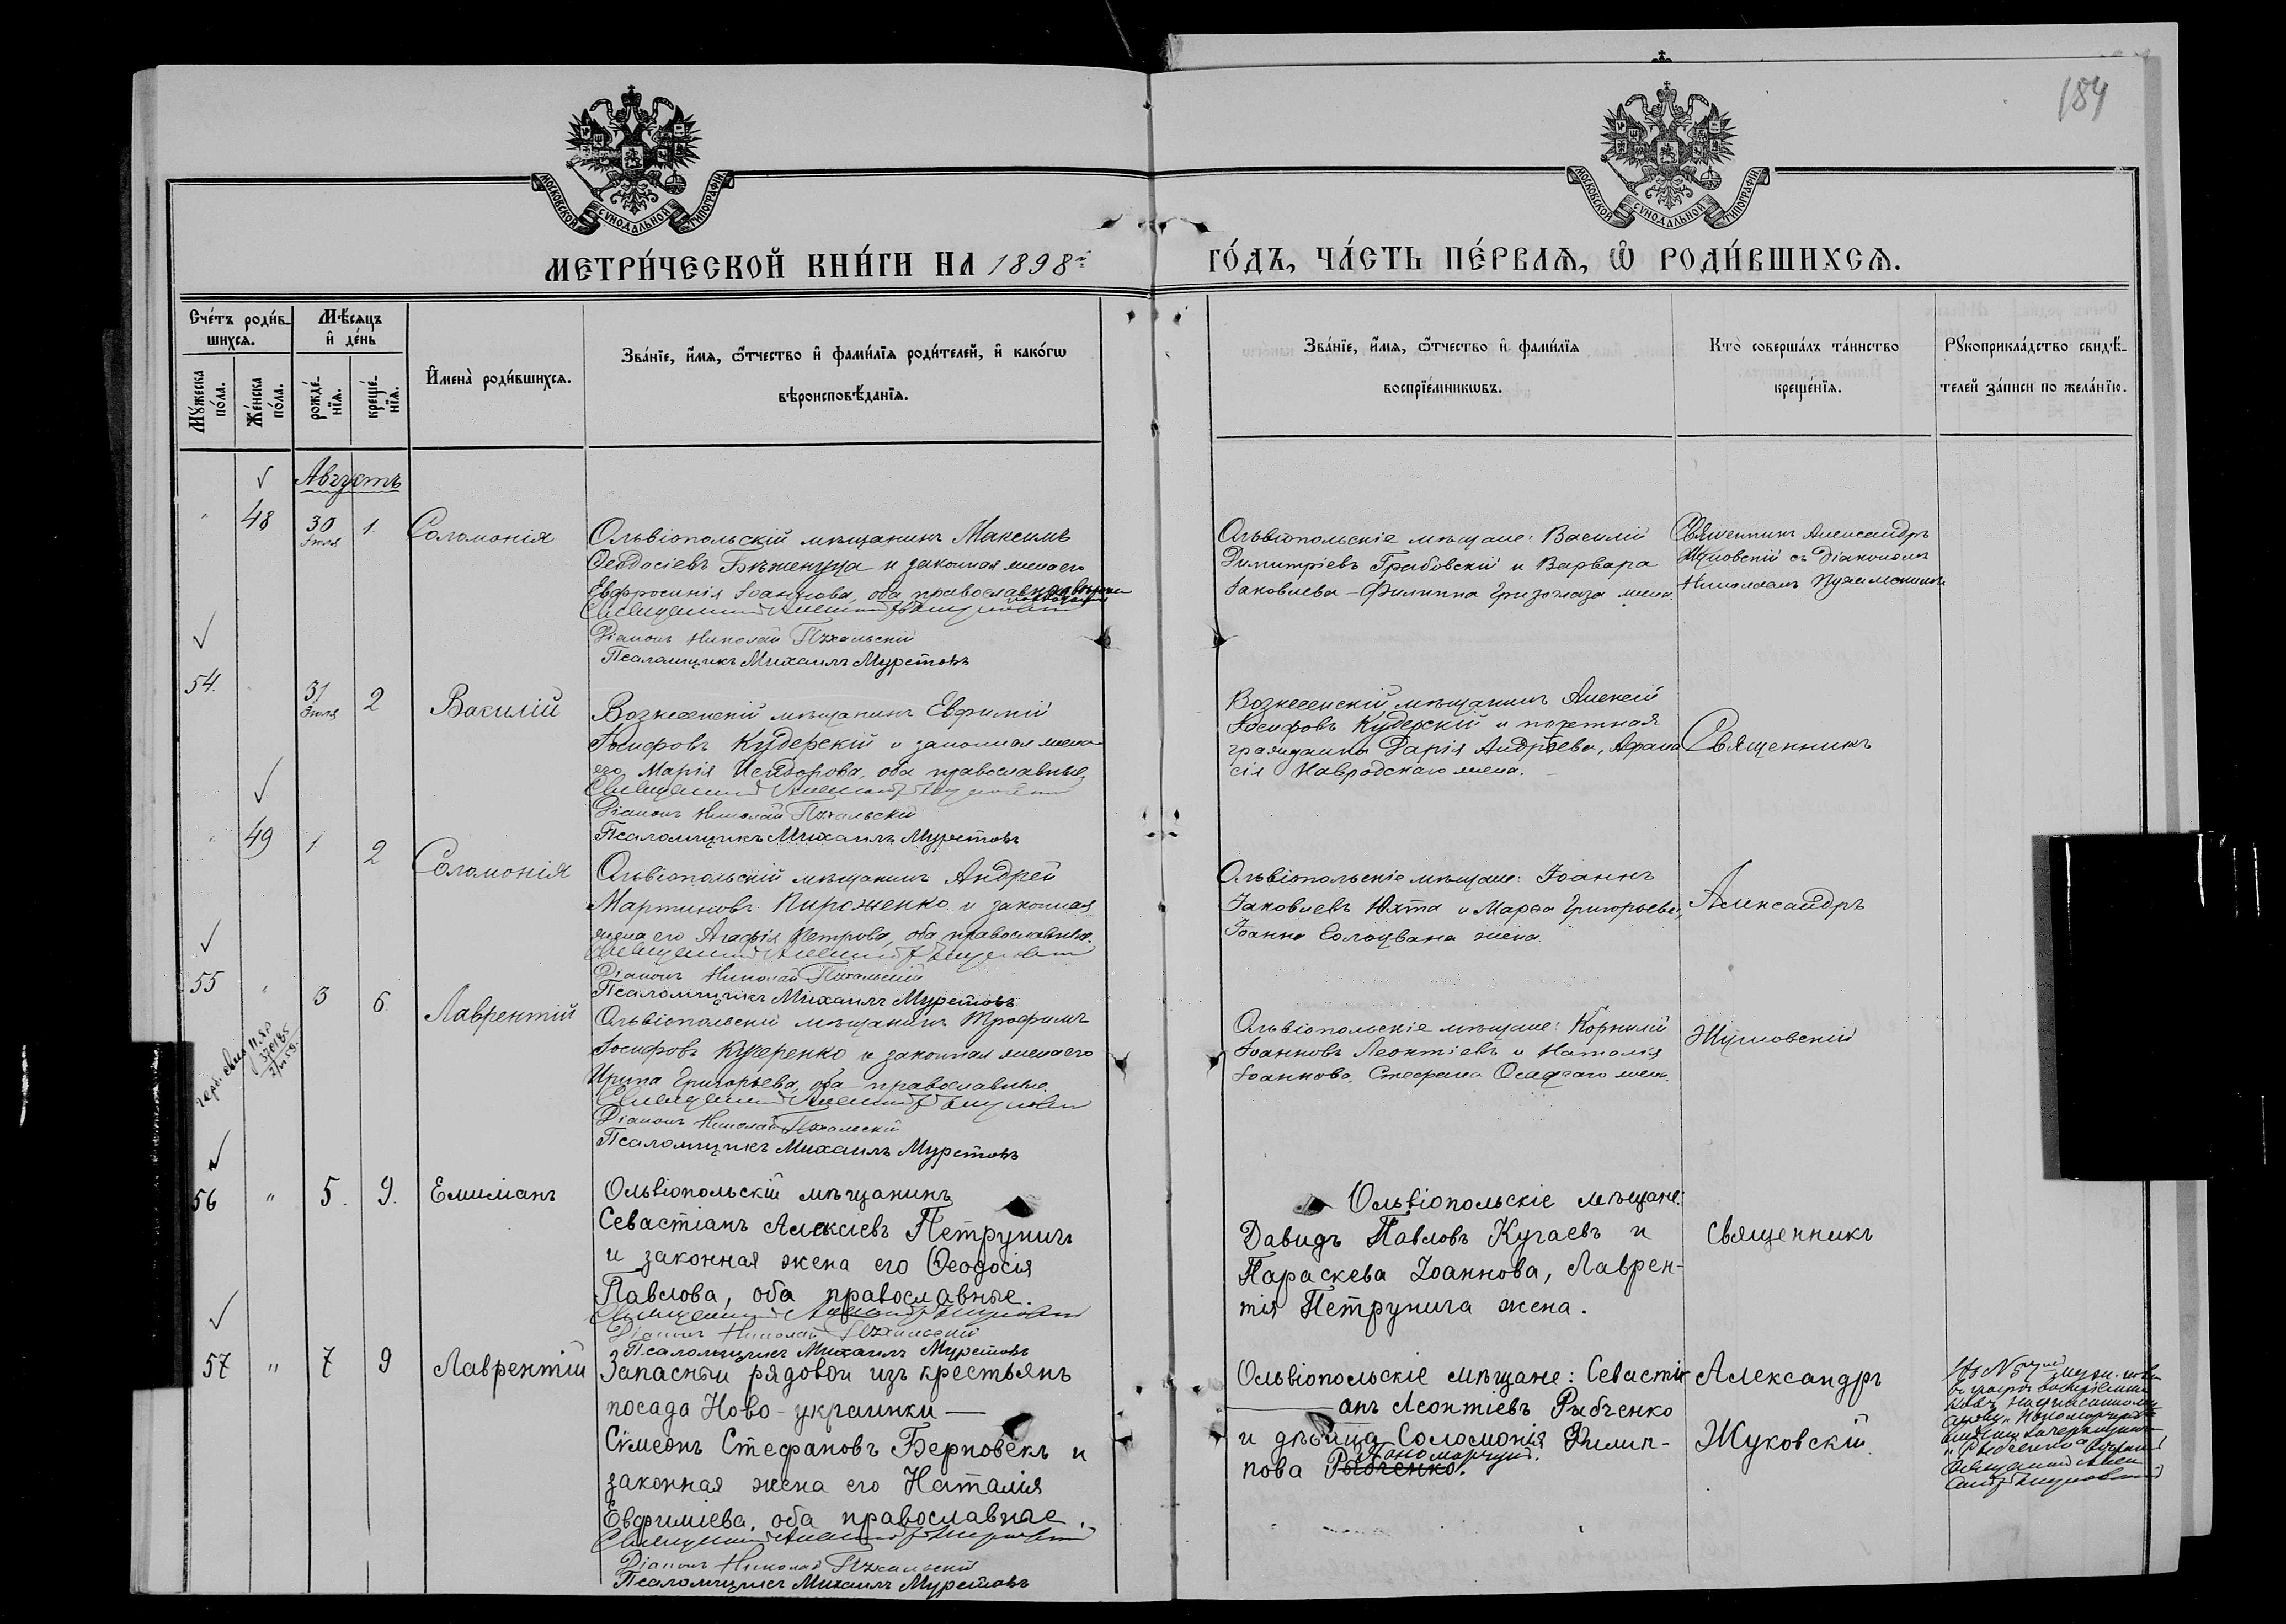 184
МОСКОВСКОЙ СУНОДАЛЬНОЙ ТИПОГРАФІИ
МОСКОВСКОЙ СУНОДАЛЬНОЙ ТИПОГРАФІИ
МЕТРИ́ЧЕСКОЙ КНИ́ГИ НА 1898й
ГО́ДЪ, ЧА́СТЬ ПЕ́РВАѦ, Ѡ РОДИ́ВШИХСѦ.
Сче́тъ роди́в-
шихсѧ.
Мѣ́сѧцъ
и҆ де́нь
Мꙋ́жеска
по́ла.
Же́нска
по́ла.
рожде́-
нїѧ.
креще́-
нїѧ.
И҆мена̀ роди́вшихсѧ.
Зва́нїе, и҆́мѧ, ѻ҆́тчество и҆ фами́лїѧ роди́телей, и҆ како́гѡ
вѣроисповѣ́данїѧ.
Зва́нїе, и҆́мѧ, ѻ҆́тчество и҆ фами́лїѧ
воспрїе́мникѡвъ.
Кто̀ соверша́лъ та́инство
креще́нїѧ.
Рꙋкоприкла́дство свидѣ́-
телей за́писи по жела́нїю.
Августъ
48 30 Іюля 1. Соломонія
Ольвіопольскій мѣщанинъ Максимъ
Ѳеодосіевъ и законная жена его
Евфросинія Іоаннова, оба православные
Діаконъ Николай Пухальскій
Псаломщикъ Михаилъ Муретовъ
Ольвіопольскіе мѣщане: Василій
Димитріевъ Грабовскій и Варвара
Іаковлева - Филиппа Гризоглаза жена.
Священникъ Александръ
Жуковскій съ Діакономъ
Николаемъ Пухальскимъ
54. 31 Іюля 2 Василій
Вознесенскій мѣщанинъ Евфимій
Іосифовъ Кудерскій и законная жена
его Марія Исидорова, оба православные.
Священникъ Александръ Жуковскій
Діаконъ Николай Пухальскій
Псаломщикъ Михаилъ Муретовъ
Вознесенскій мѣщанинъ Алексій
Іосифовъ Кудерскій и почетная
гражданка Дарія Андреева, Афана
сія Навродскаго жена.
Священникъ
49 1 2 Соломонія
Ольвіопольскій мѣщанинъ Андрей
Мартиновъ Пироженко и законная
жена его Агафія Петрова, оба православные.
Священникъ Александръ Жуковскій
Діаконъ Николай Пухальскій
Псаломщикъ Михаилъ Муретовъ
Ольвіопольскіе мѣщане: Іоаннъ
Іаковлевъ Юхта и Марѳа Григорьева,
Іоанна жена.
Александръ
55 " 3 6 Лаврентій
Ольвіопольскій мѣщанинъ Трофимъ
Іосифовъ Кучеренко и законная жена его
Ирина Григорьева, оба православные.
Священникъ Александръ Жуковскій
Діаконъ Николай Пухальскій
Псаломщикъ Михаилъ Муретовъ
Ольвіопольскіе мѣщане: Корнилій
Іоанновъ Леонтіевъ и Наталія
Іоаннова, Стефана Осадчаго жена.
Жуковскій
56 " 5. 9. Емиліанъ
Ольвіопольскій мѣщанинъ
Севастіанъ Алексіевъ Петруничъ
и законная жена его Ѳеодосія
Павлова, оба православные.
Священникъ Александръ Жуковскій
Діаконъ Николай Пухальскій
Псаломщикъ Михаилъ Муретовъ
Ольвіопольскіе мѣщане:
Давидъ Павловъ Кугаевъ и
Параскева Іоаннова, Лаврен-
тія Петрунича жена.
Священникъ
57 " 7 9 Лаврентій
Запасный рядовой изъ крестьянъ
посада Ново-украинки —
Сѵмеонъ Стефановъ Берповекъ и
законная жена его Наталія
Евфиміева, оба православные.
Священникъ Александръ Жуковскій
Діаконъ Николай Пухальскій
Псаломщикъ Михаилъ Муретовъ
Ольвіопольскіе мѣщане: Севасті-
анъ Леонтіевъ Рыбченко
и дѣвица Соломонія Филип-
Пономарчукъ.
пова Рыбченко.
Александръ
Жуковскій